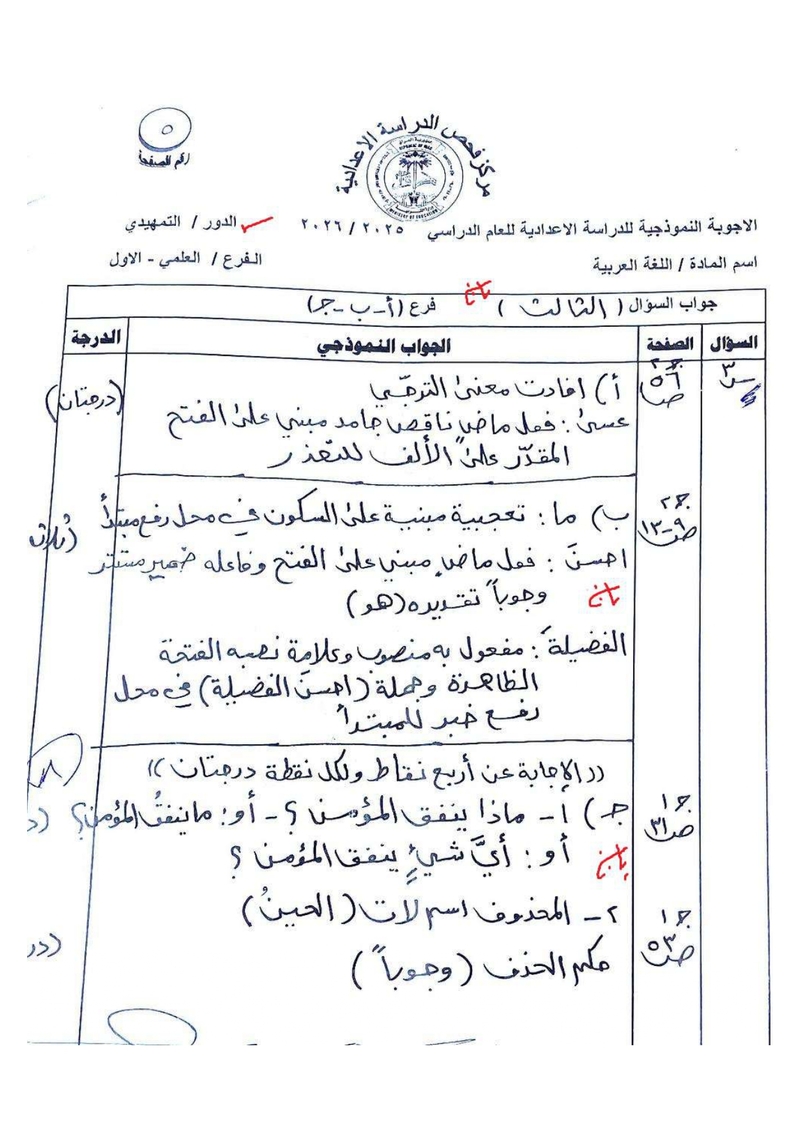 ٥
رقم الصفحة
مركز فحص الدراسة الاعدادية
الاجوبة النموذجية للدراسة الاعدادية للعام الدراسي ٢٠٢٥ / ٢٠٢٦ الدور / التمهيدي
اسم المادة / اللغة العربية الفرع / العلمي - الاول
جواب السؤال ( الثالث ) فرع (أ-ب-جـ)
السؤال الصفحة الجواب النموذجي الدرجة
س٣ جـ٢ ص٥٦ أ) افادت معنى الترجّي (درجتان)
عسى : فعل ماضٍ ناقص جامد مبني على الفتح
المقدّر على الألف للتعذر
جـ٢ ص٩-١٣ ب) ما : تعجبية مبنية على السكون في محل رفع مبتدأ (ثلاث
احسنَ : فعل ماضٍ مبني على الفتح وفاعله ضمير مستتر
وجوباً تقديره (هو)
الفضيلةَ : مفعول به منصوب وعلامة نصبه الفتحة
الظاهرة وجملة (احسنَ الفضيلة) في محل
رفع خبر للمبتدأ
((الإجابة عن أربع نقاط ولكل نقطة درجتان))
جـ١ ص٣١ جـ) ١- ماذا ينفق المؤمن ؟ - أو : ما ينفقُ المؤمن؟ (د
أو : أيَّ شيءٍ ينفق المؤمن ؟
جـ١ ص٥٣ ٢- المحذوف اسم لات (الحينُ)
حكم الحذف (وجوباً) (در